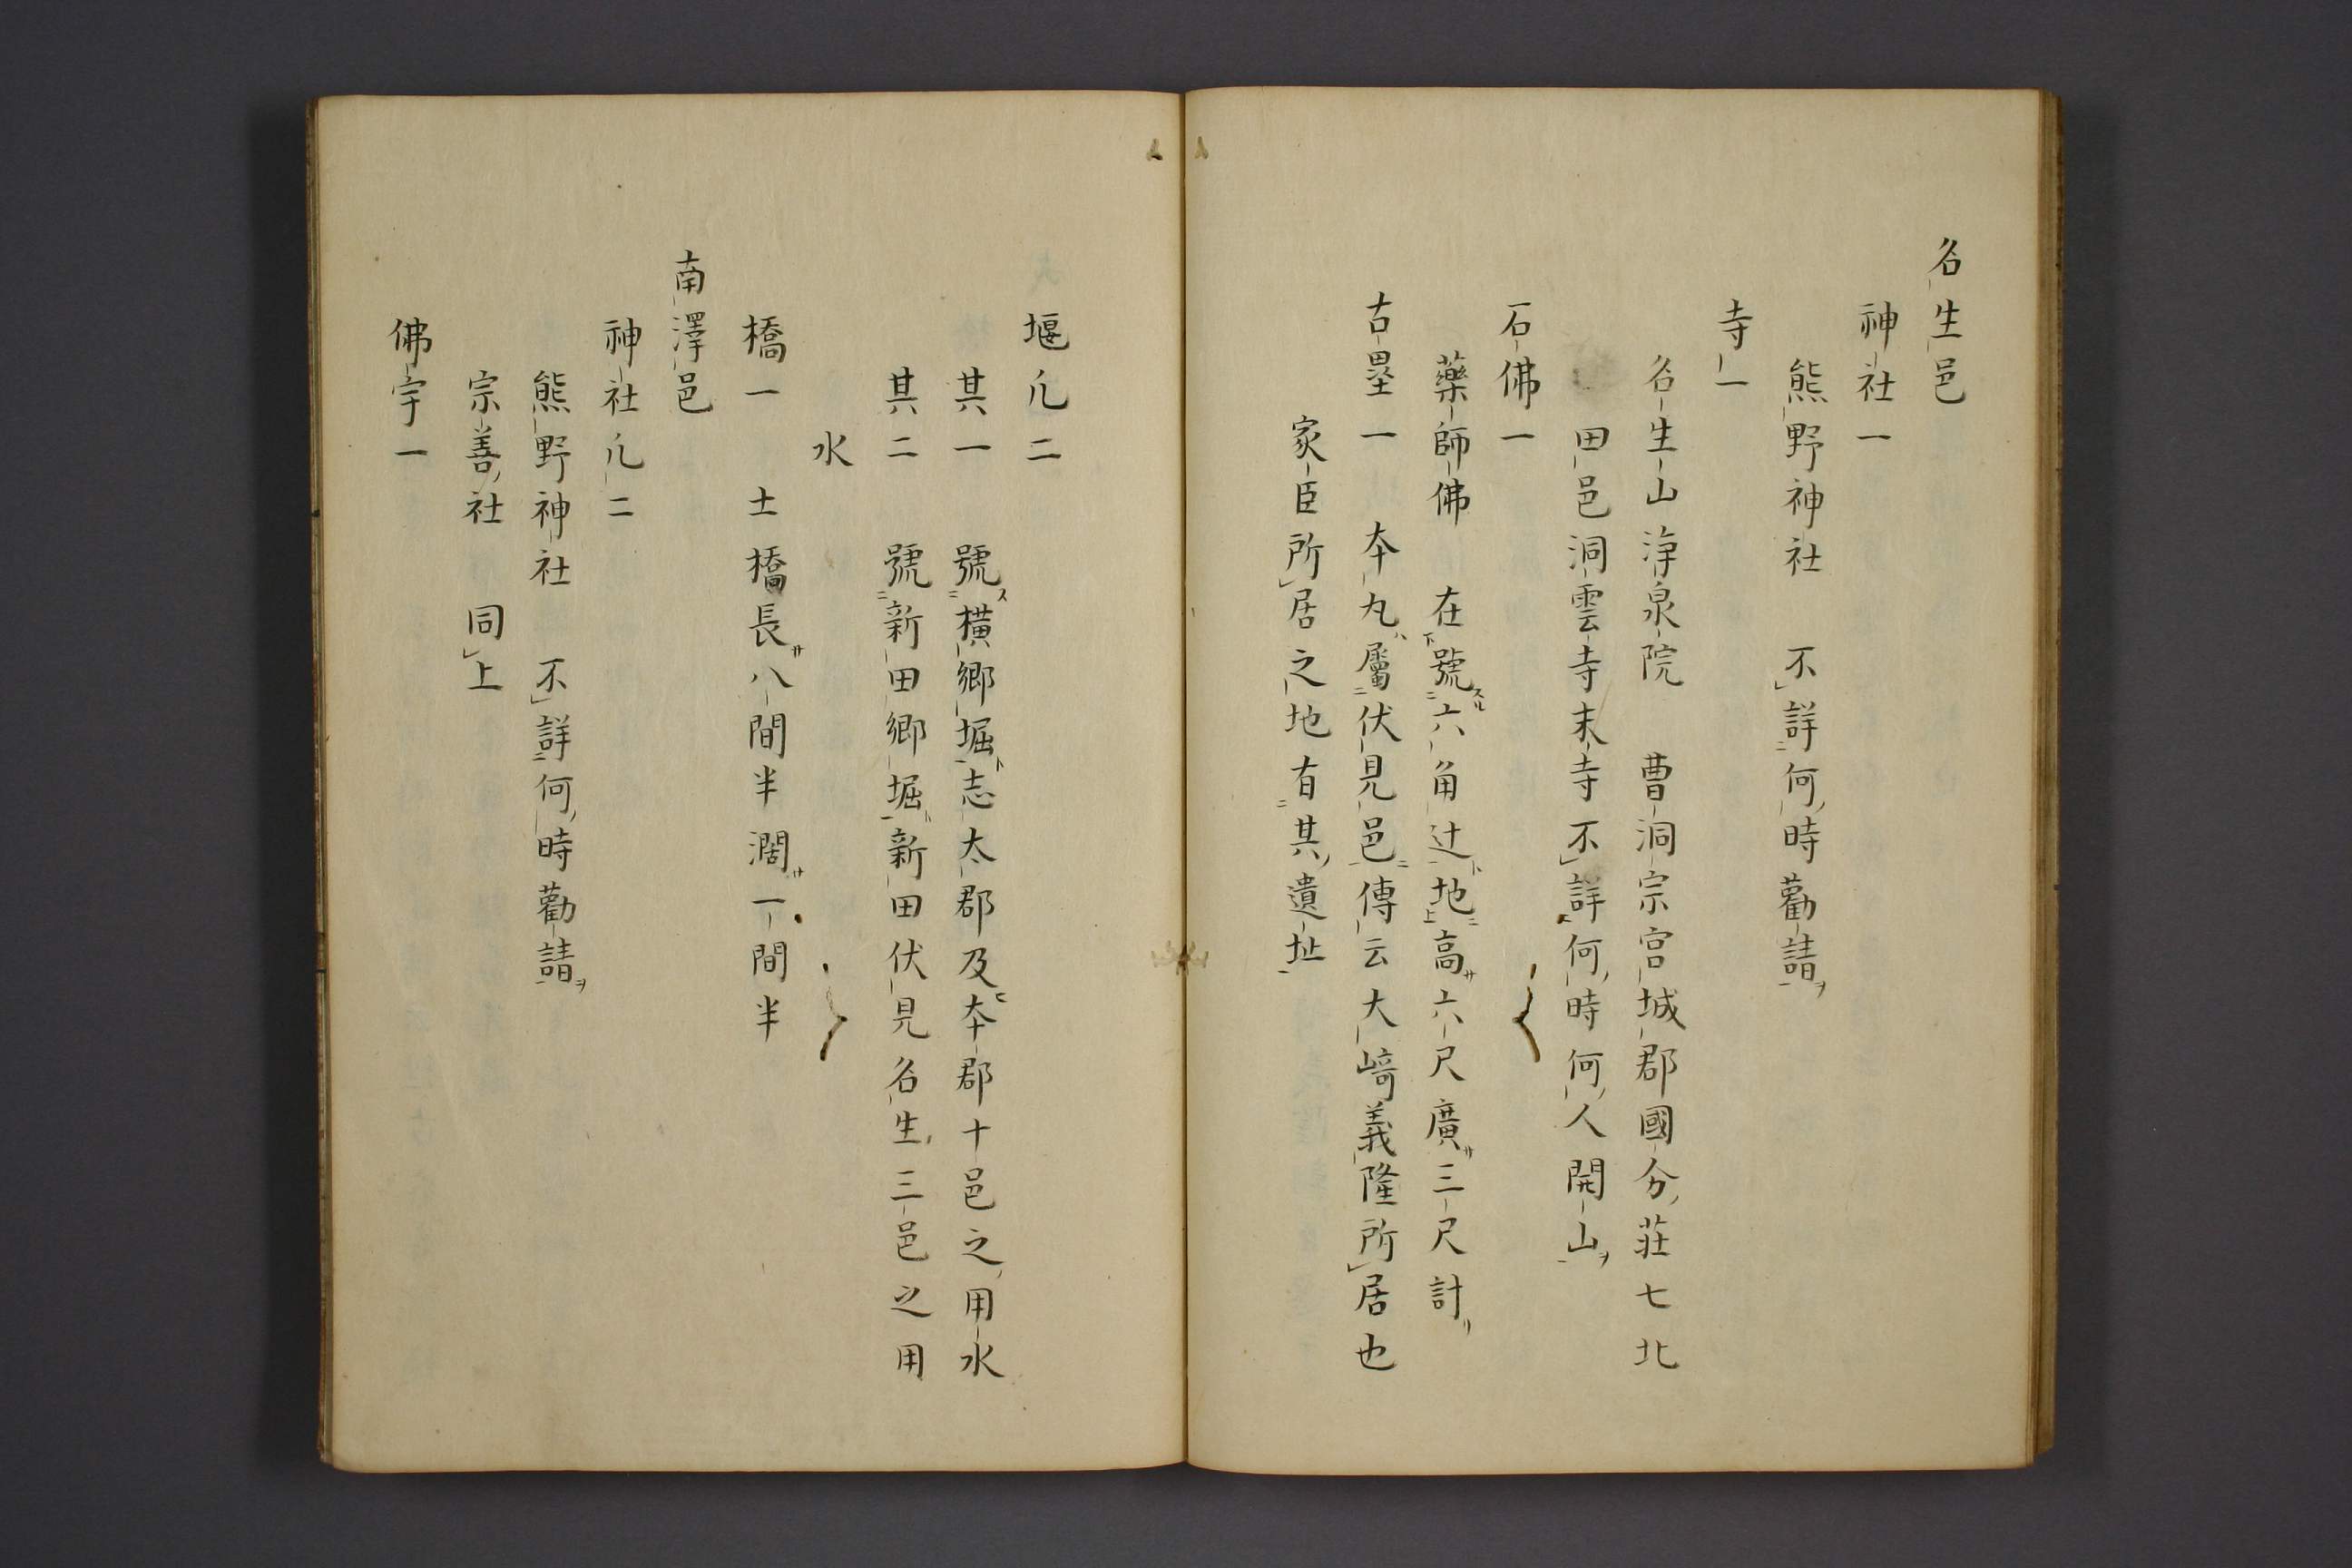 名生邑
神社一
熊野神社 不詳何時勸請
寺一
名生山淨泉院 曹洞宗宮城郡國分荘七北
田邑洞雲寺末寺不詳何時何人開山
石佛一
藥師佛 在號六角辻地高六尺廣三尺計
古壘一 本丸屬伏見邑傳云大﨑義隆所居也
家臣所居之地有其遺址
堰凢二
其一 號橫鄉堀志太郡及本郡十邑之用水
其二 號新田鄉堀新田伏見名生三邑之用
水
橋一 土橋長八間半濶一間半
南澤邑
神社凢二
熊野神社 不詳何時勸請
宗善社 同上
佛宇一